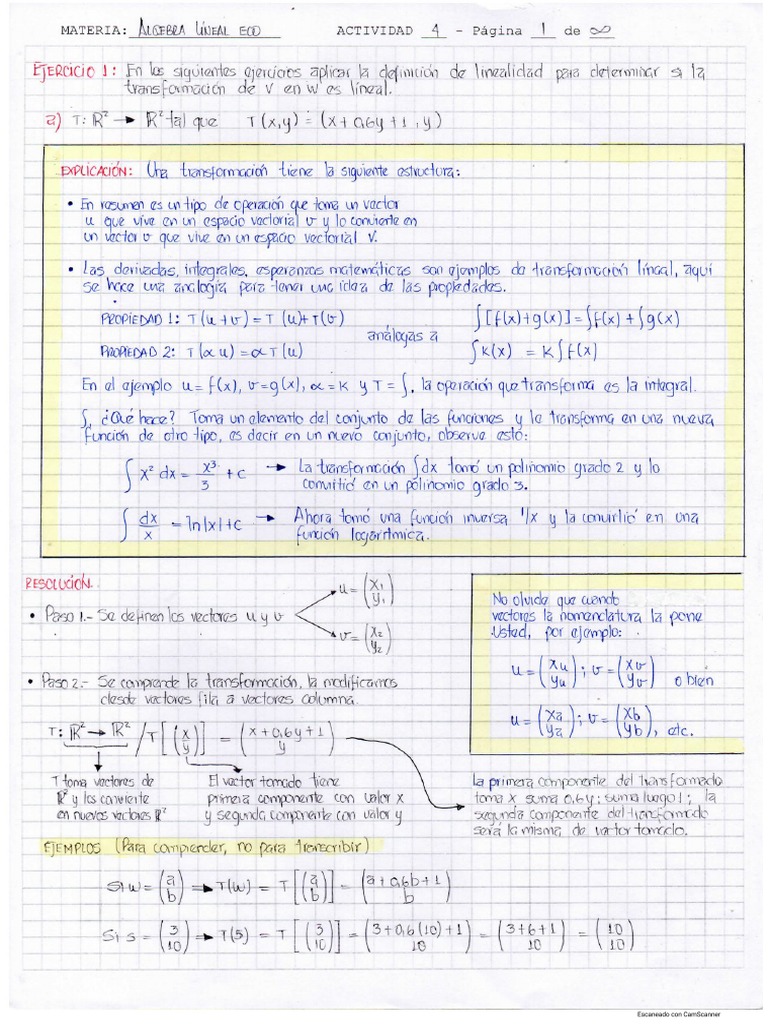 MATERIA: ALGEBRA LINEAL ECO ACTIVIDAD 4 - Página 1 de ∞
EJERCICIO 1: En los siguientes ejercicios aplicar la definición de linealidad para determinar si la
transformación de V en W es lineal.
a) T: ℝ² → ℝ² tal que T(x,y) = (x+0,6y+1, y)
EXPLICACIÓN: Una transformación tiene la siguiente estructura:
• En resumen es un tipo de operación que toma un vector
u que vive en un espacio vectorial v y lo convierte en
un vector v que vive en un espacio vectorial V.
• Las derivadas, integrales, esperanzas matemáticas son ejemplos de transformación lineal, aquí
se hace una analogía para tener una idea de las propiedades.
PROPIEDAD 1: T(u+v) = T(u)+T(v) ∫[f(x)+g(x)] = ∫f(x)+∫g(x)
análogas a
PROPIEDAD 2: T(αu) = αT(u) ∫K(x) = K∫f(x)
En el ejemplo u=f(x), v=g(x), α=K y T=∫, la operación que transforma es la integral.
∫, ¿Qué hace? Toma un elemento del conjunto de las funciones y lo transforma en una nueva
función de otro tipo, es decir en un nuevo conjunto, observe esto:
∫ x² dx = x³/3 + c → La transformación ∫dx tomó un polinomio grado 2 y lo
convirtió en un polinomio grado 3.
∫ dx/x = ln|x|+c → Ahora tomó una función inversa 1/x y la convirtió en una
función logarítmica.
RESOLUCIÓN.
• Paso 1.- Se definen los vectores u y v
u = (x₁ y₁)
v = (x₂ y₂)
No olvide que cuando
vectores la nomenclatura la pone
Usted, por ejemplo:
u = (xu yu) ; v = (xv yv) o bien
u = (xa ya) ; v = (xb yb), etc.
• Paso 2.- Se comprende la transformación, la modificamos
desde vectores fila a vectores columna.
T: ℝ² → ℝ² / T[(x y)] = (x+0,6y+1 y)
T toma vectores de
ℝ² y los convierte
en nuevos vectores ℝ²
El vector tomado tiene
primera componente con valor x
y segunda componente con valor y
La primera componente del transformado
toma x suma 0,6y; suma luego 1; la
segunda componente del transformado
será la misma de vector tomado.
EJEMPLOS (Para comprender, no para transcribir)
Si w = (a b) → T(w) = T[(a b)] = (a+0,6b+1 b)
Si s = (3 10) → T(s) = T[(3 10)] = (3+0,6(10)+1 10) = (3+6+1 10) = (10 10)
Escaneado con CamScanner